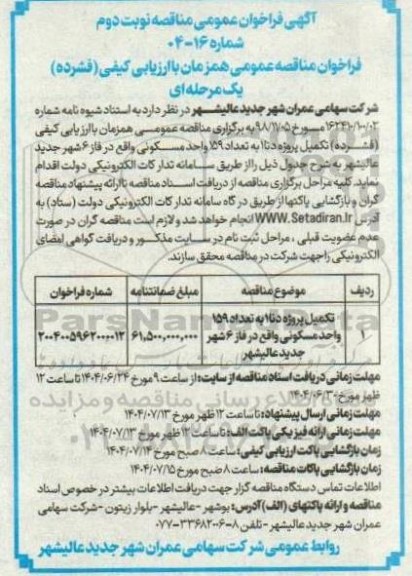 آگهی فراخوان عمومی مناقصه نوبت دوم
شماره ۱۶-۰۴
فراخوان مناقصه عمومی همزمان با ارزیابی کیفی (فشرده)
یک مرحله ای
شرکت سهامی عمران شهر جدید عالیشهر در نظر دارد به استناد شیوه نامه شماره
مورخ ۹۸/۷/۰۵ به برگزاری مناقصه عمومی همزمان با ارزیابی کیفی
(فشرده) تکمیل پروژه دنا۱ به تعداد ۱۵۹ واحد مسکونی واقع در فاز ۶ شهر جدید
عالیشهر به شرح جدول ذیل را از طریق سامانه تدارکات الکترونیکی دولت اقدام
نماید. کلیه مراحل برگزاری مناقصه از دریافت اسناد مناقصه تا ارائه پیشنهاد مناقصه
گران و بازگشایی پاکتها از طریق درگاه سامانه تدارکات الکترونیکی دولت (ستاد) به
آدرس WWW.Setadiran.Ir انجام خواهد شد و لازم است مناقصه گران در صورت
عدم عضویت قبلی، مراحل ثبت نام در سایت مذکور و دریافت گواهی امضای
الکترونیکی را جهت شرکت در مناقصه محقق سازند.
ردیف موضوع مناقصه مبلغ ضمانتنامه شماره فراخوان
تکمیل پروژه دنا۱ به تعداد ۱۵۹
۱ واحد مسکونی واقع در فاز ۶ شهر ۶۱,۵۰۰,۰۰۰,۰۰۰ ۲۰۰۴۰۰۵۹۶۲۰۰۰۰۱۲
جدید عالیشهر
مهلت زمانی دریافت اسناد مناقصه از سایت: از ساعت ۹ مورخ ۱۴۰۴/۰۶/۲۴ تا ساعت ۱۲
ظهر مورخ
مهلت زمانی ارسال پیشنهاد: تا ساعت ۱۲ ظهر مورخ ۱۴۰۴/۰۷/۱۳
مهلت زمانی ارائه فیزیکی پاکت الف: تا ساعت ۱۲ ظهر مورخ ۱۴۰۴/۰۷/۱۳
زمان بازگشایی پاکت ارزیابی کیفی: ساعت ۸ صبح مورخ ۱۴۰۴/۰۷/۱۴
زمان بازگشایی پاکات مناقصه: ساعت ۸ صبح مورخ ۱۴۰۴/۰۷/۱۵
اطلاعات تماس دستگاه مناقصه گزار جهت دریافت اطلاعات بیشتر در خصوص اسناد
مناقصه و ارائه پاکتهای (الف) آدرس: بوشهر - عالیشهر - بلوار زیتون - شرکت سهامی
عمران شهر جدید عالیشهر - تلفن ۸-۳۳۶۸۲۰۰۶-۰۷۷
روابط عمومی شرکت سهامی عمران شهر جدید عالیشهر